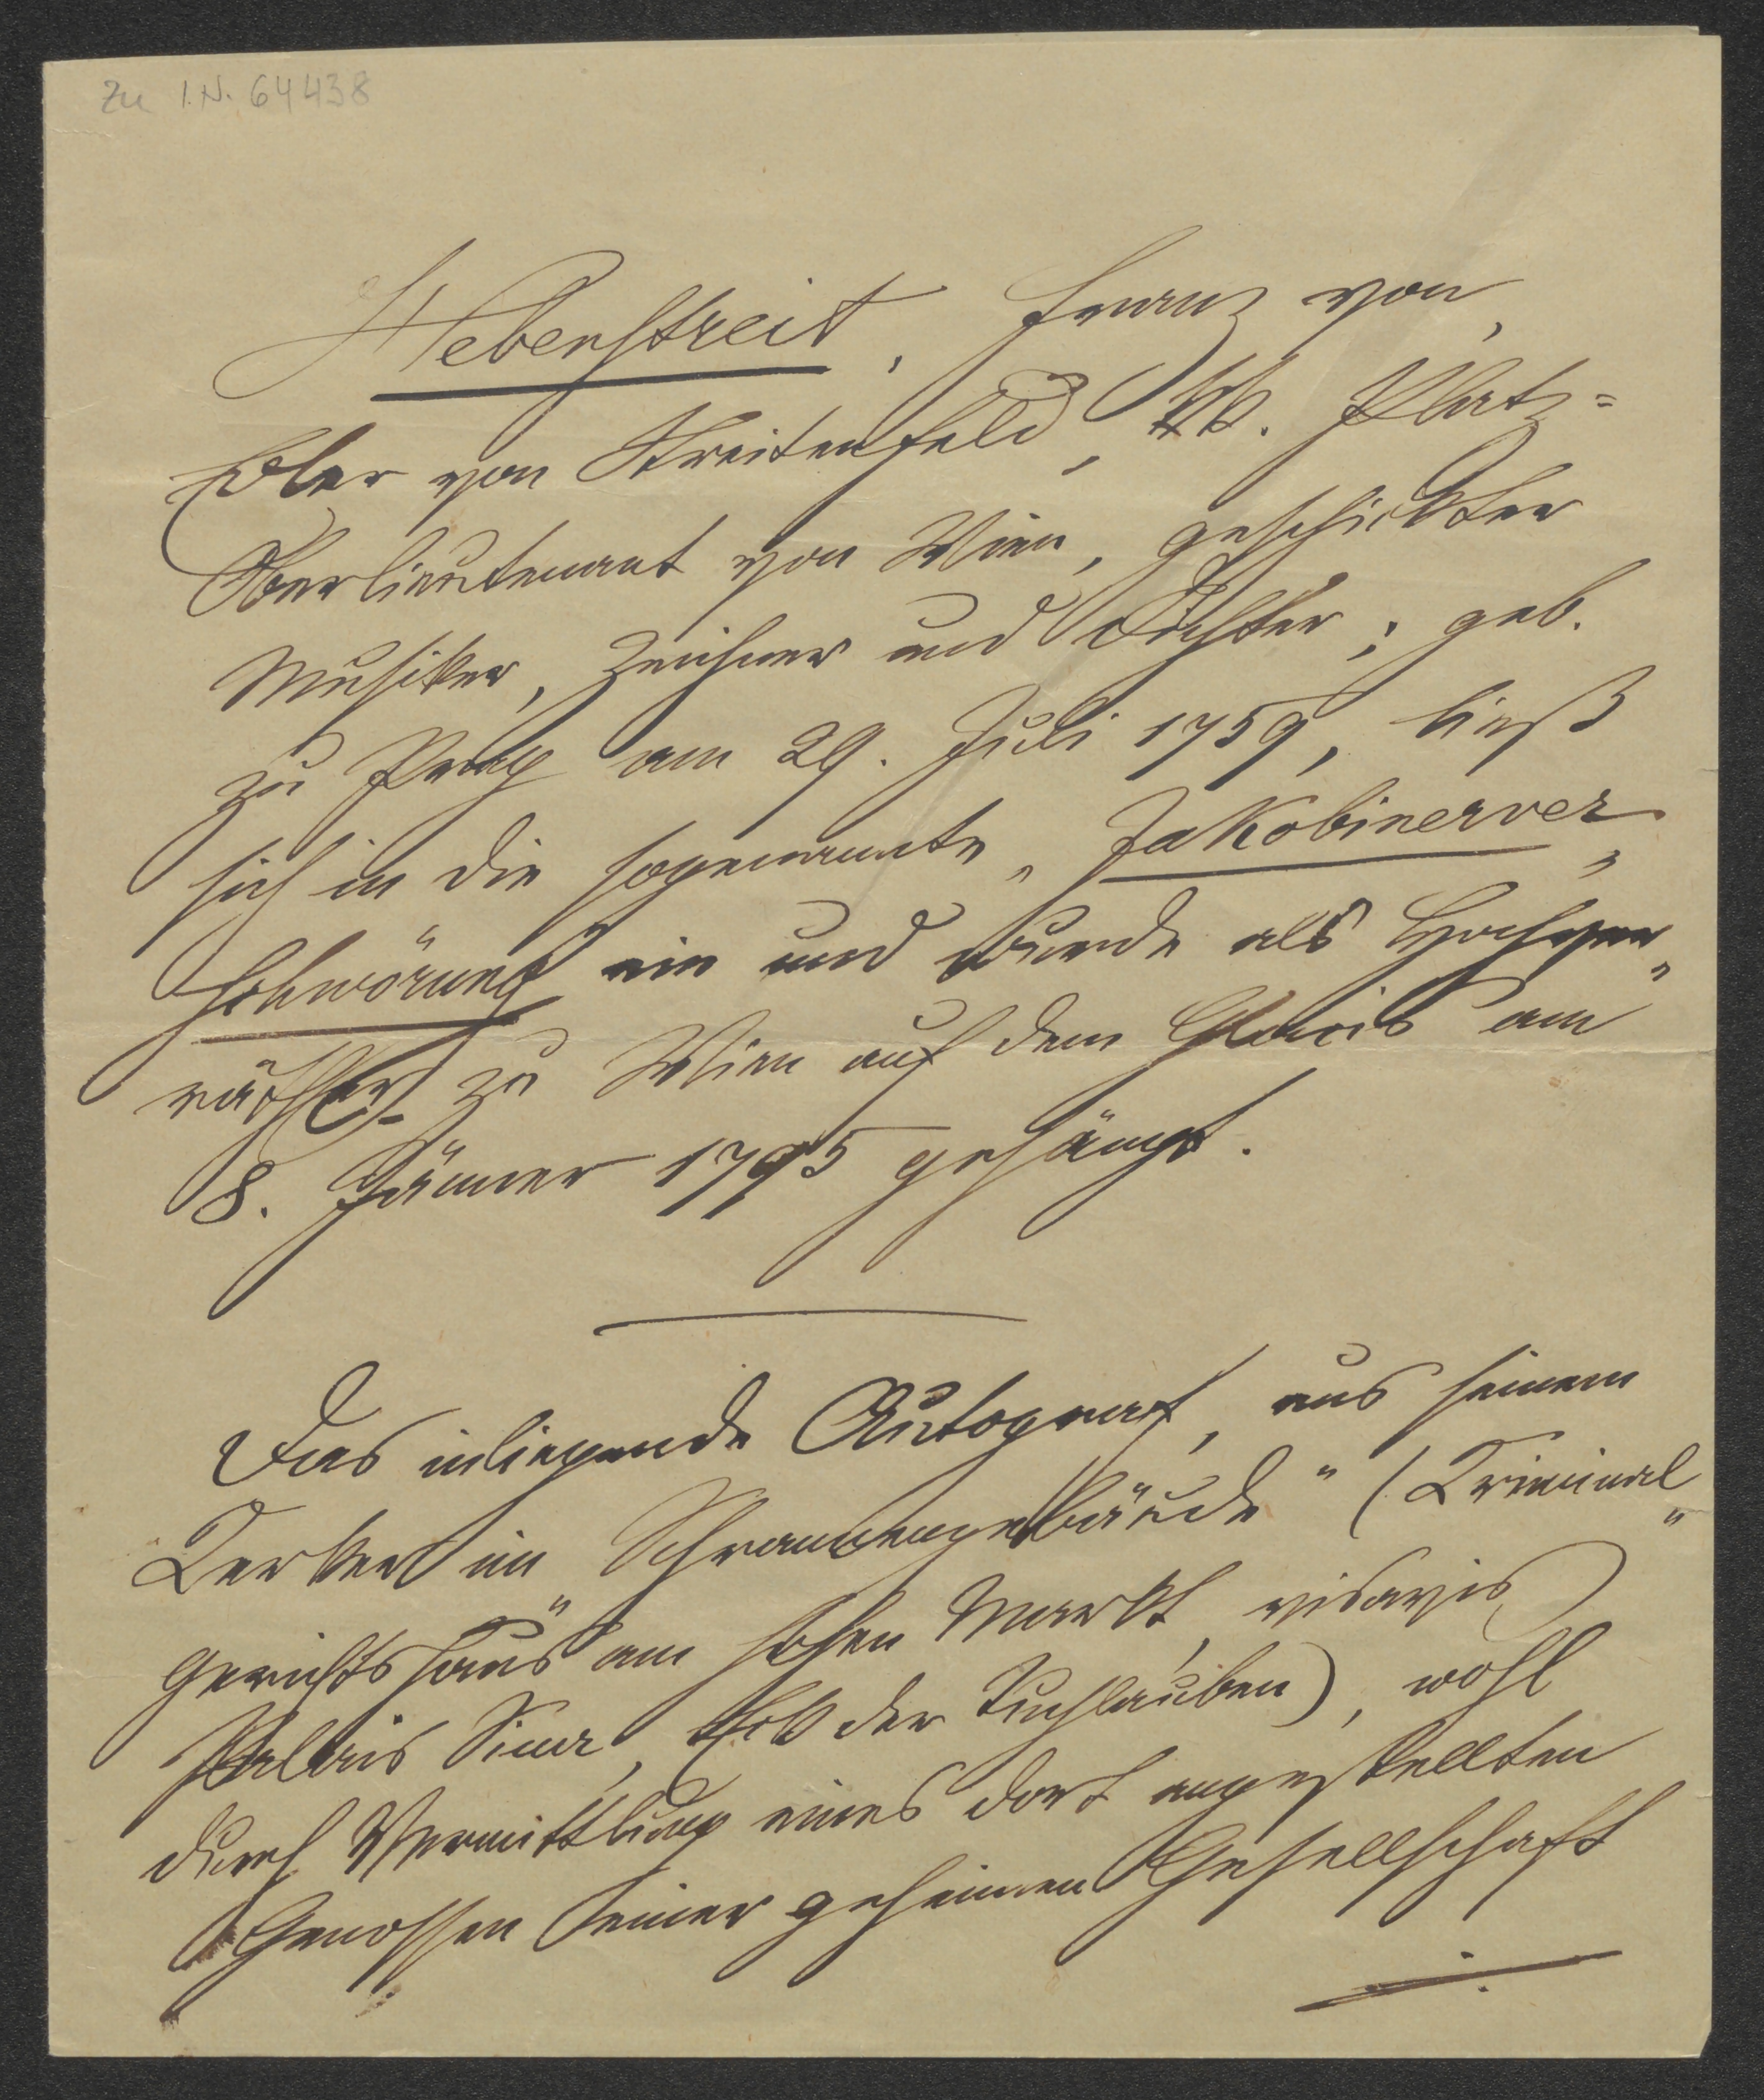 Zu I.N. 64438
Hebenstreit, Franz von,
Edler von Streitenfeld, kk. Platz=
Oberlieutenant von Wien, geschickter
Musiker, Zeichner und Dichter; geb.
zu Prag am 29. Juli 1759, ließ
sich in die sogenannte „Jakobinerver„
schwörung“ ein und wurde als Hochver„
räther zu Wien auf dem Glacis am
8. Jänner 1795 gehängt.
Das inliegende Autograf, aus seinem
Kerker im „Schrannengebäude“ (Criminal„
gerichtshaus am hohen Markt, visavis
Palais Sina, Eck der Tuchlauben), wohl
durch Vermittlung eines dort angestellten
Genossen seiner geheimen Gesellschaft
./.